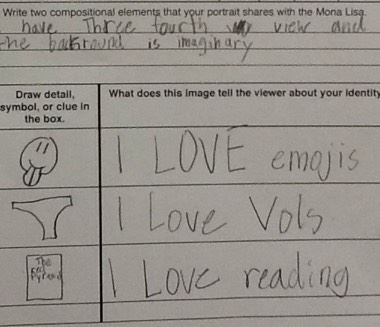 Write two compositional elements that your portrait shares with the Mona Lisa.
have Three fourth view and
the background is imaginary
Draw detail,
symbol, or clue in
the box.
What does this image tell the viewer about your identity
I LOVE emojis
I Love Vols
The
Red
Pyramid
I Love reading